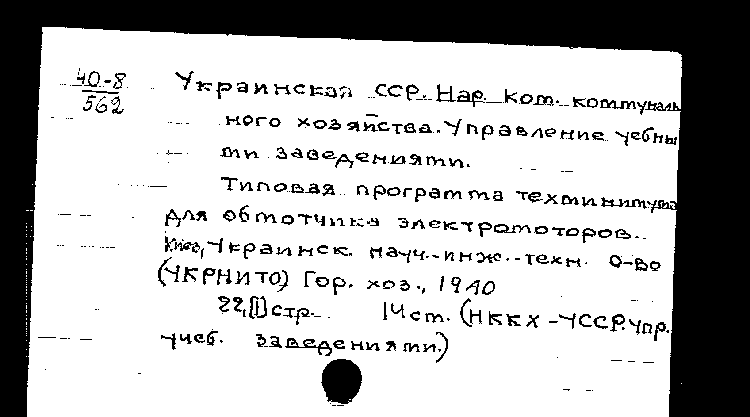 40-8
562
Украинская ССР. Нар. Ком. коммуналь
ного хозяйства. Управление учебны
ми заведениями.
Типовая программа техминимума
для обмотчика электромоторов.
Киев, Украинск. науч.-инж.-техн. о-во
(УКРНИТО) Гор. хоз., 1940
22,[1] стр. 14 см. (НККХ-УССР. Упр.
учеб. заведениями.)